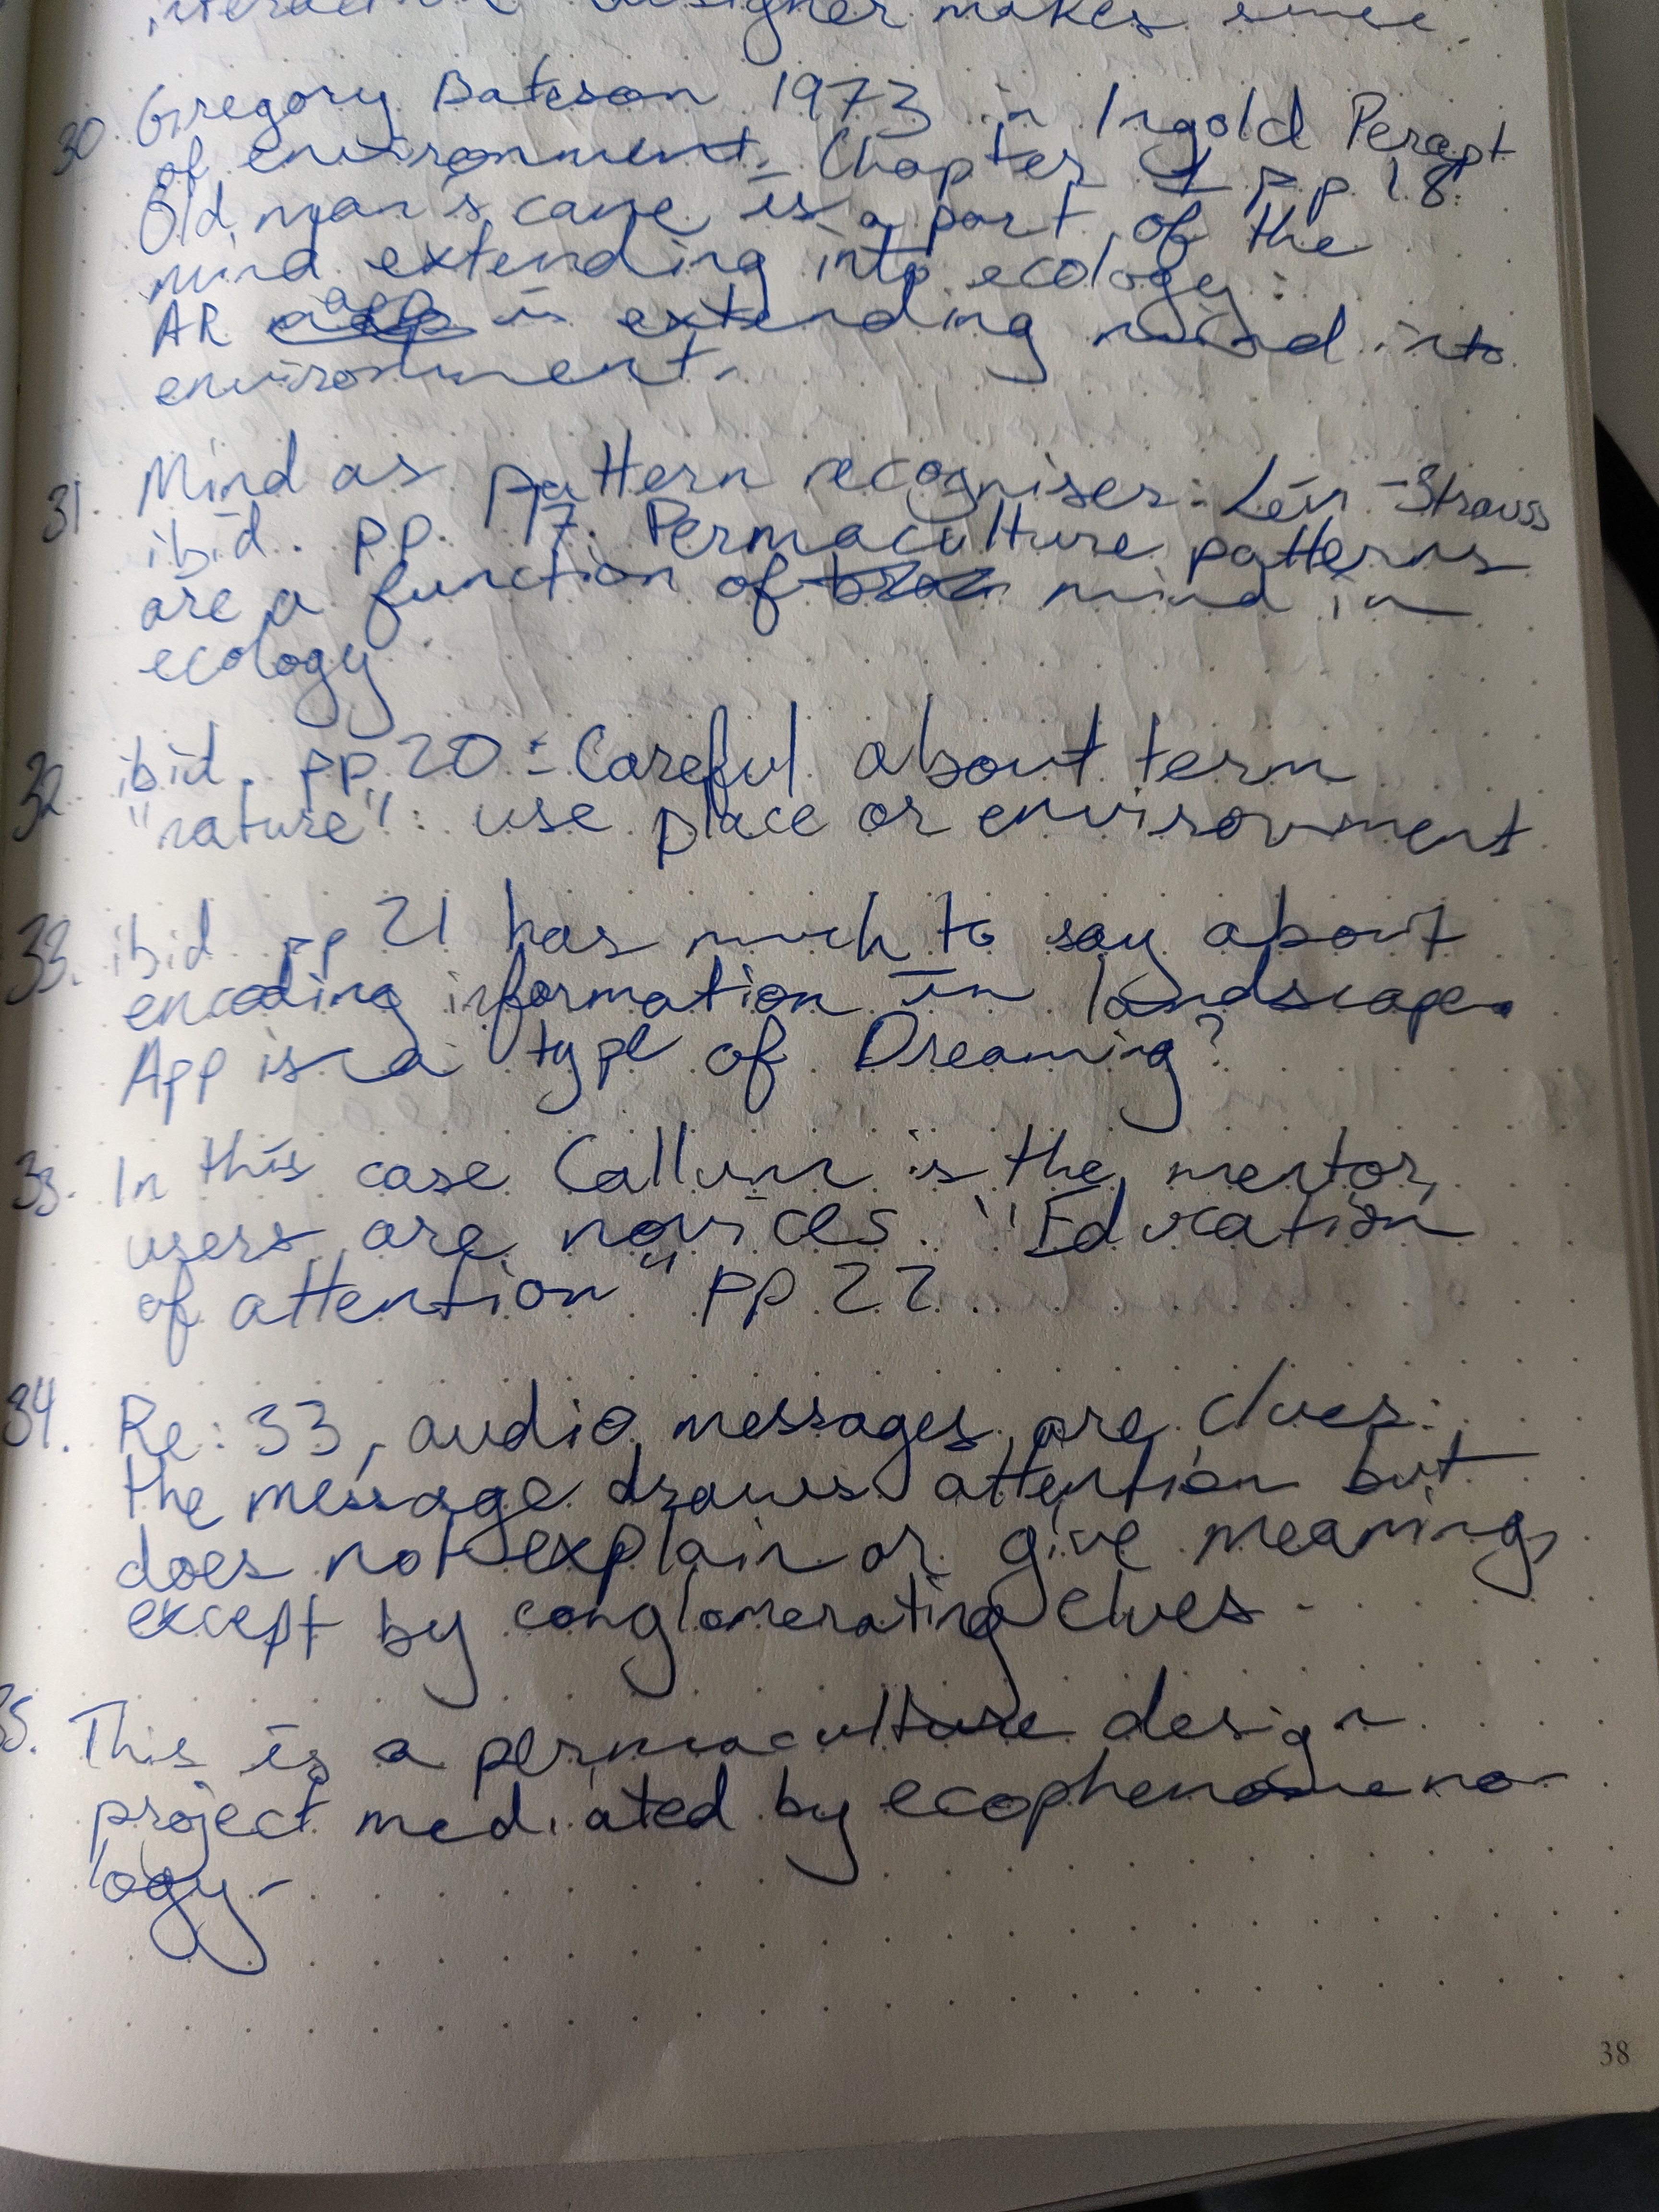 designer makes
30. Gregory Bateson 1973 in Ingold Percept
of environment. Chapter 1 pp 18:
Old man's cane is a part of the
mind extending into ecology:
AR app is extending mind into
environment.
31. Mind as pattern recogniser: Lévi-Strauss
ibid. pp. 17. Permaculture patterns
are a function of mind in
ecology
32. ibid. pp 20: Careful about term
"nature": use place or environment
33. ibid. pp 21 has much to say about
encoding information in landscape.
App is a type of Dreaming?
33. In this case Callum is the mentor,
users are novices. "Education
of attention" pp 22
34. Re: 33, audio messages are clues:
the message draws attention but
does not explain or give meaning,
except by conglomerating clues.
35. This is a permaculture design
project mediated by ecophenomeno-
logy.
38